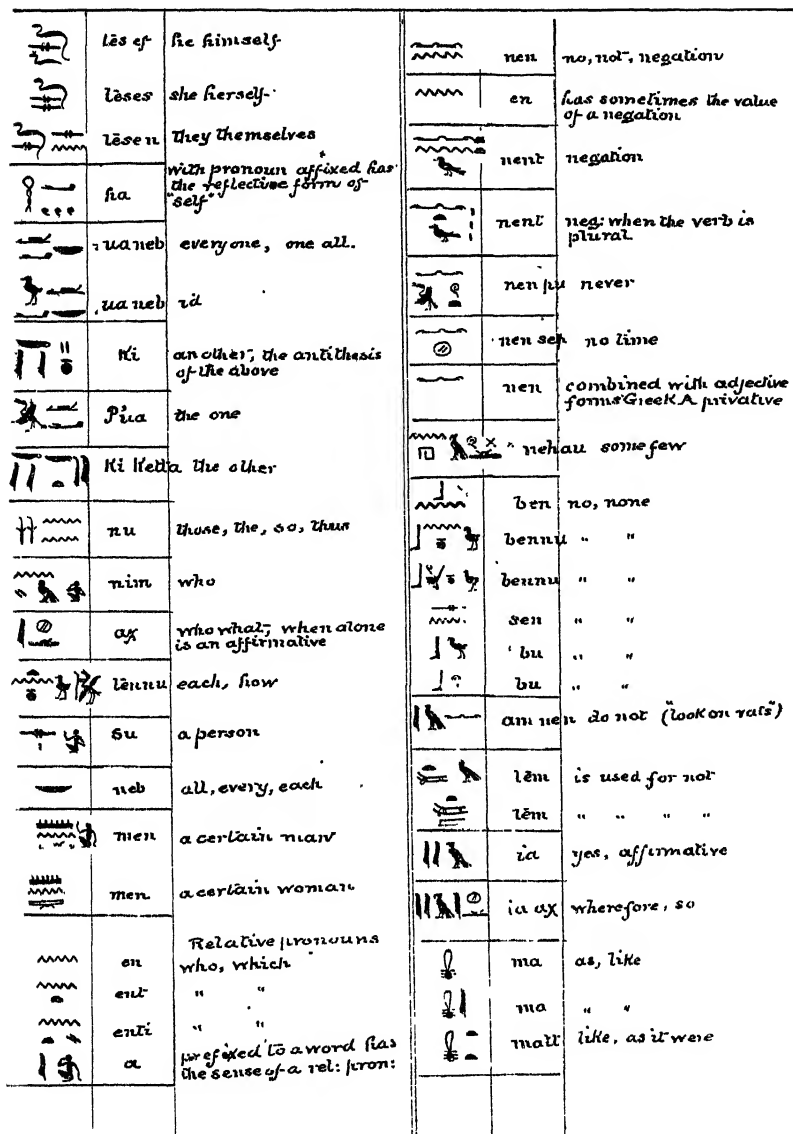 tes ef he himself
teses she herself
tesen they themselves
ha with pronoun affixed has
the reflective form of
"self"
ua neb every one, one all.
ua neb id
Ki another, the antithesis
of the above
P'ua the one
Ki Ketta the other
nu those, the, so, thus
nim who
aχ who what, when alone
is an affirmative
tennu each, how
su a person
neb all, every, each
men a certain man
men a certain woman
Relative pronouns
en who, which
ent " "
enti " "
a prefixed to a word has
the sense of a rel: pron:
nen no, not, negation
en has sometimes the value
of a negation
nent negation
nent neg: when the verb is
plural
nen pu never
nen sep no time
nen combined with adjective
forms Greek A privative
nehau some few
ben no, none
bennu " "
bennu " "
sen " "
bu " "
bu " "
am nen do not ("look on rats")
tem is used for not
tem " " " "
ia yes, affirmative
ia aχ wherefore, so
ma as, like
ma " "
matt like, as it were